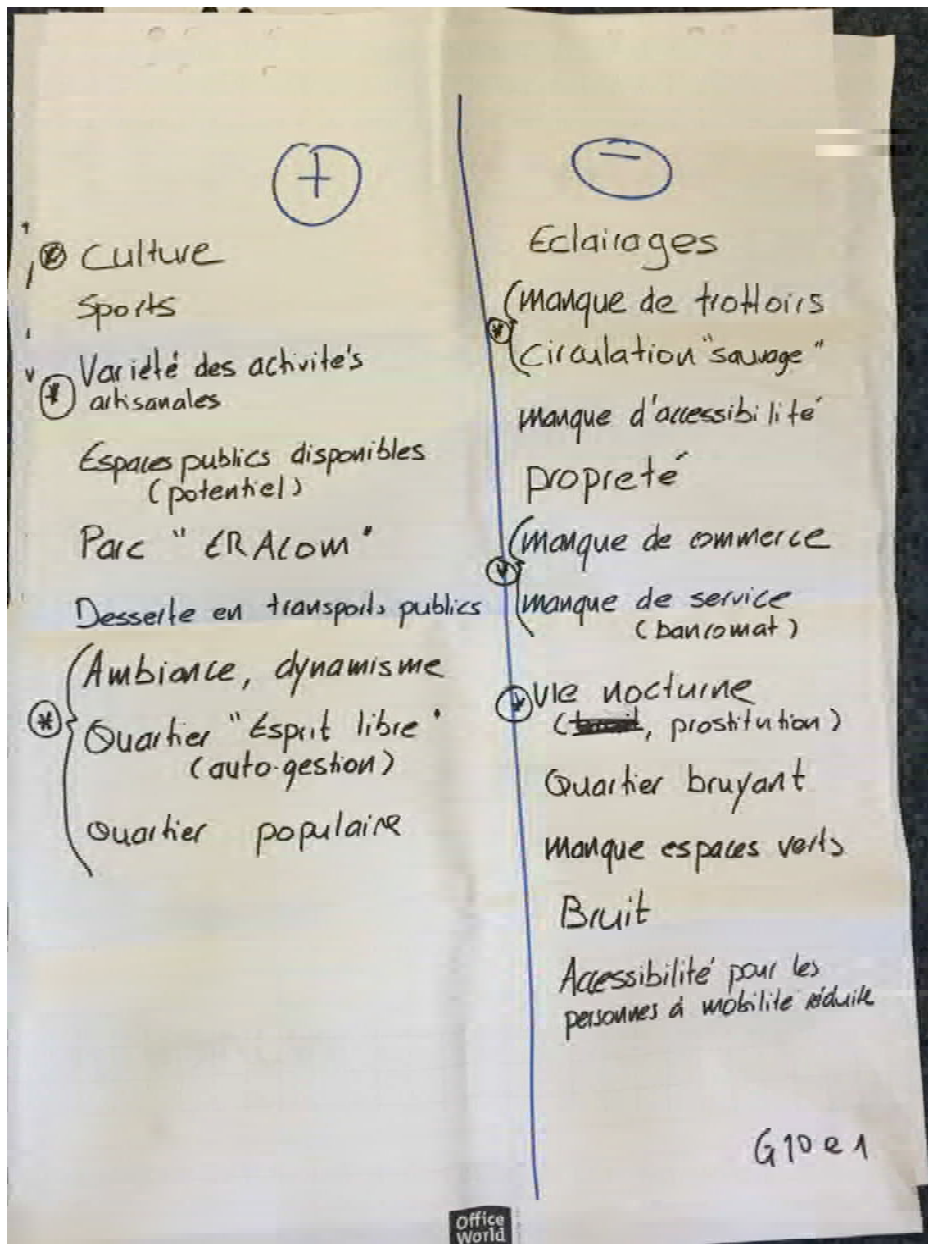 +
Culture
Sports
Variété des activités
artisanales
Espaces publics disponibles
(potentiel)
Parc "ERACOM"
Desserte en transports publics
Ambiance, dynamisme
Quartier "Esprit libre"
(auto-gestion)
Quartier populaire
−
Eclairages
manque de trottoirs
Circulation "sauvage"
manque d'accessibilité
propreté
manque de commerce
manque de service
(bancomat)
Vie nocturne
(, prostitution)
Quartier bruyant
manque espaces verts
Bruit
Accessibilité pour les
personnes à mobilité réduite
G10 e 1
Office
World